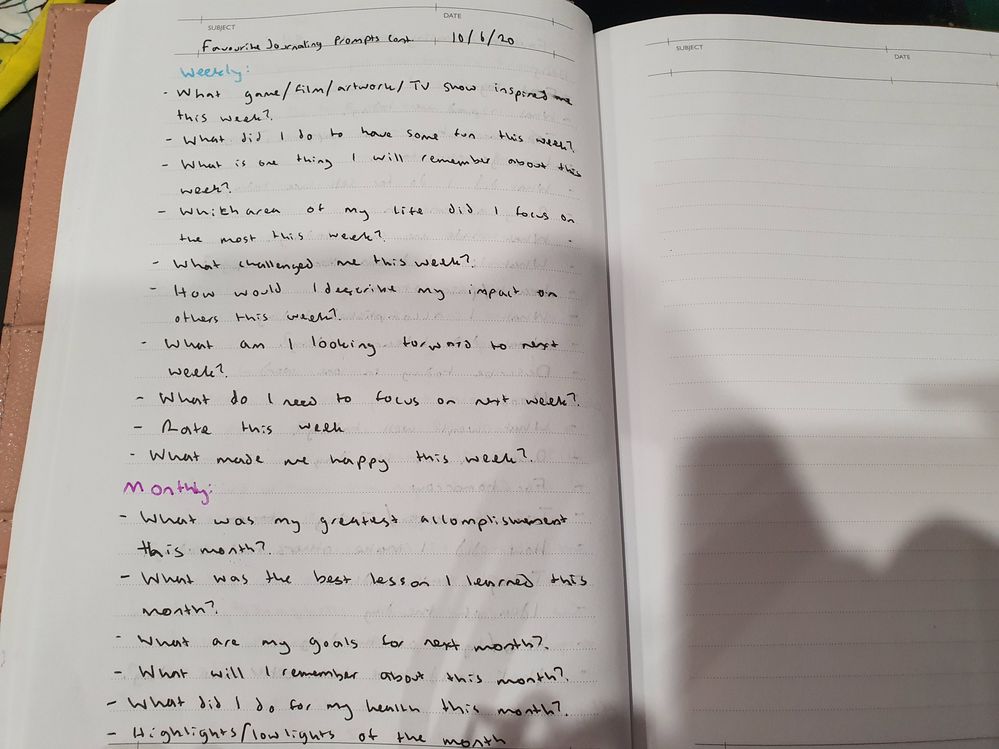 SUBJECT
DATE
Favourite Journaling Prompts Cont. 10/6/20
Weekly:
- What game/film/artwork/TV show inspired me
this week?
- What did I do to have some fun this week?
- What is one thing I will remember about this
week?
- Which area of my life did I focus on
the most this week?
- What challenged me this week?
- How would I describe my impact on
others this week?
- What am I looking forward to next
week?
- What do I need to focus on next week?
- Rate this week
- What made me happy this week?
Monthly:
- What was my greatest accomplishment
this month?
- What was the best lesson I learned this
month?
- What are my goals for next month?
- What will I remember about this month?
- What did I do for my health this month?
- Highlights/lowlights of the month
SUBJECT
DATE